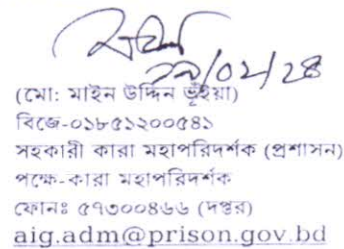 ২৯/০২/২৪
(মো: মাইন উদ্দিন ভূঁইয়া)
বিজে-০১৮৫১২০০৫৪১
সহকারী কারা মহাপরিদর্শক (প্রশাসন)
পক্ষে-কারা মহাপরিদর্শক
ফোনঃ ৫৭৩০০৪৬৬ (দপ্তর)
aig.adm@prison.gov.bd